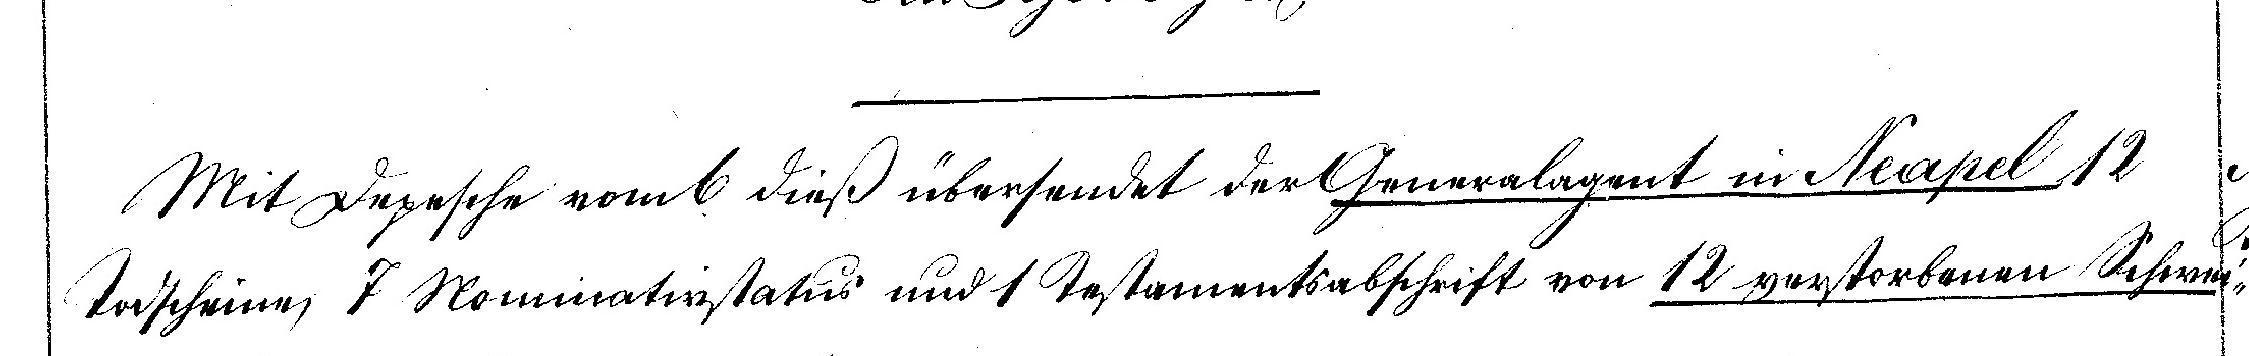 Mit Depesche vom 6. dieß übersendet der Generalagent in Neapel 12
Todscheine, 7 Nominativstatus und 1 Testamentsabschrift von 12 verstorbenen Schwei-